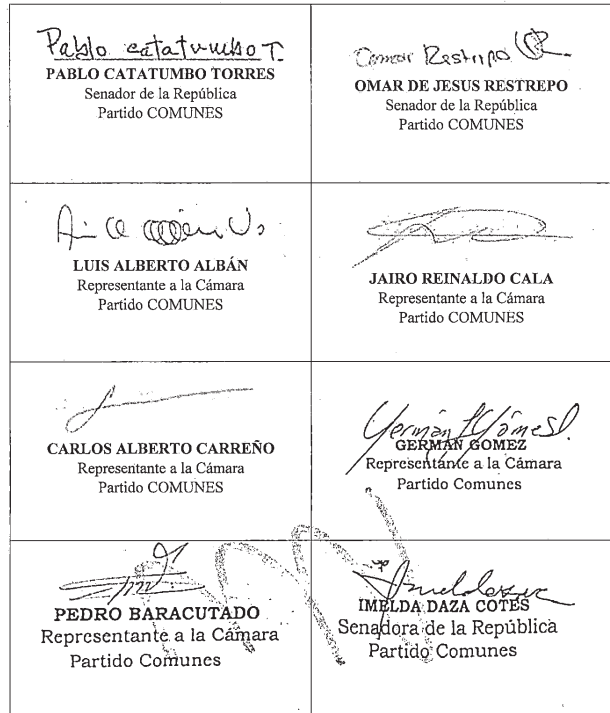 Pablo catatumbo T.
PABLO CATATUMBO TORRES
Senador de la República
Partido COMUNES
Omar Restrepo
OMAR DE JESUS RESTREPO
Senador de la República
Partido COMUNES
LUIS ALBERTO ALBÁN
Representante a la Cámara
Partido COMUNES
JAIRO REINALDO CALA
Representante a la Cámara
Partido COMUNES
CARLOS ALBERTO CARREÑO
Representante a la Cámara
Partido COMUNES
Germán Gómez
GERMAN GOMEZ
Representante a la Cámara
Partido Comunes
PEDRO BARACUTADO
Representante a la Cámara
Partido Comunes
IMELDA DAZA COTES
Senadora de la República
Partido Comunes